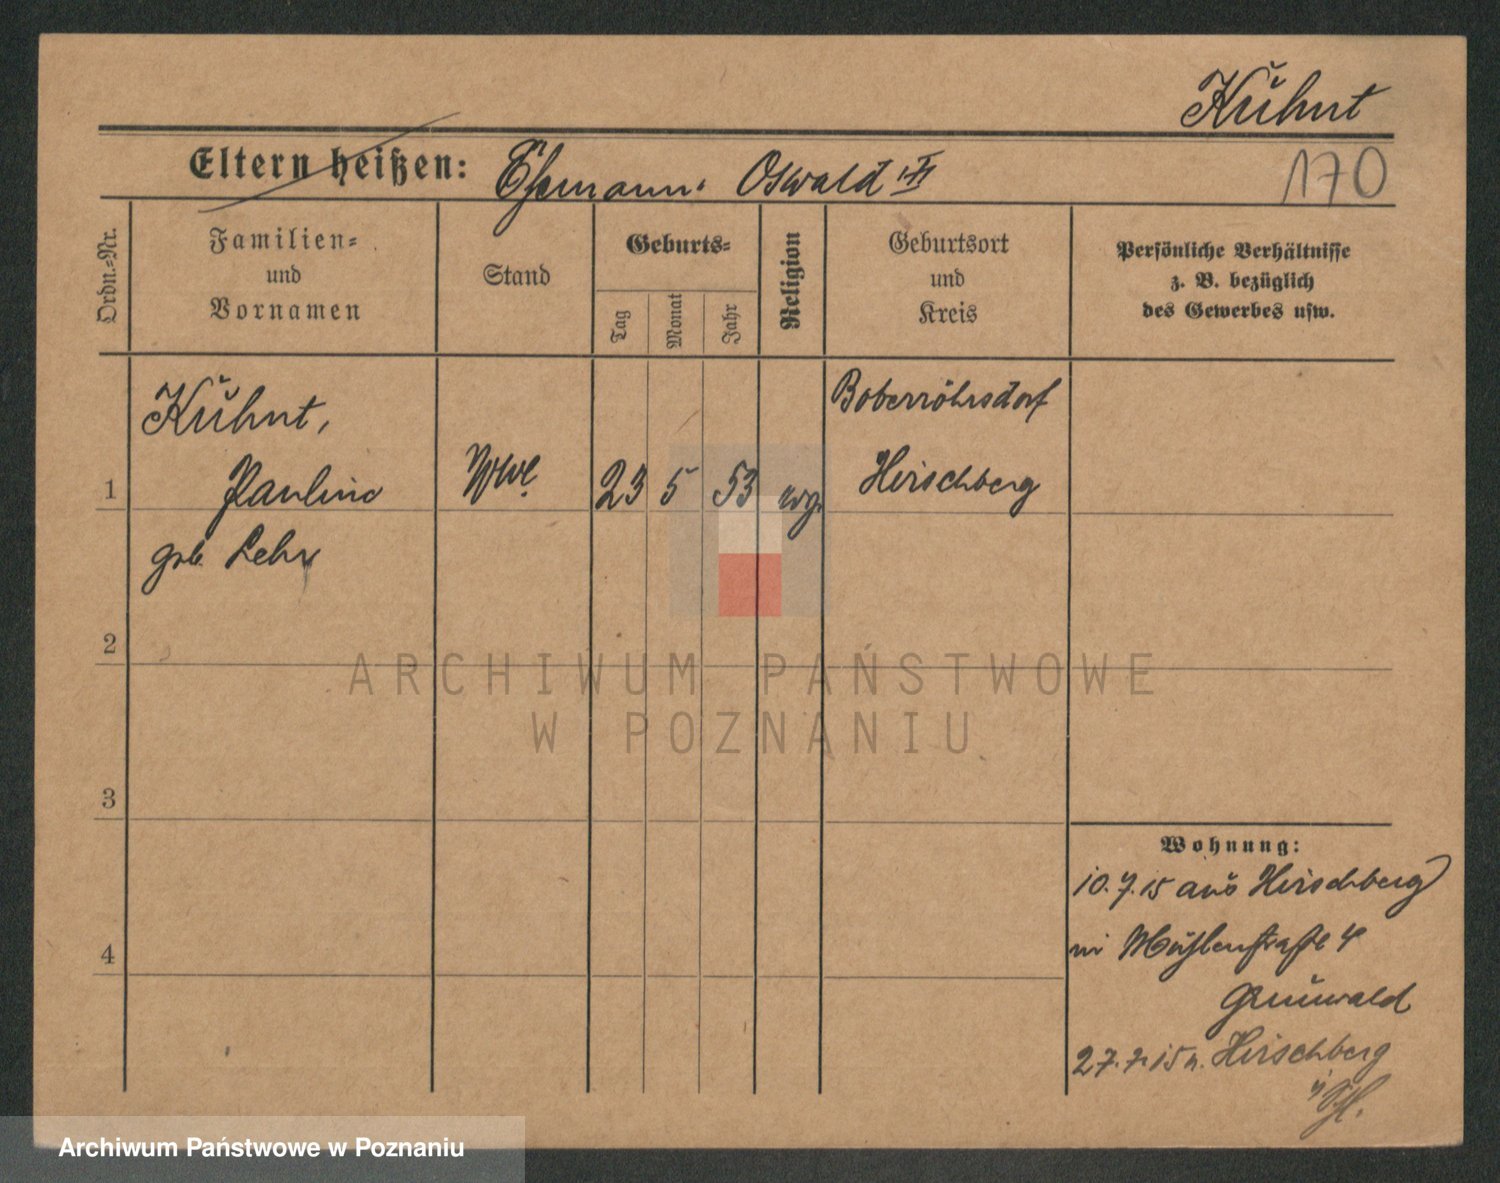 Kuhnt
Eltern heißen: Ehemann: Oswald
170
Ordn.=Nr.
Familien=
und
Vornamen
Stand
Geburts=
Tag
Monat
Jahr
Religion
Geburtsort
und
Kreis
Persönliche Verhältnisse
z. B. bezüglich
des Gewerbes usw.
1
Kuhnt,
Pauline
geb. Lehr
Wwe.
23
5
53
evg.
Boberröhrsdorf
Hirschberg
2
3
4
Wohnung:
10.7.15 aus Hirschberg
Mühlenstraße 4
Grunwald
27.7.15 n. Hirschberg
i/Schl.
ARCHIWUM PAŃSTWOWE
W POZNANIU
Archiwum Państwowe w Poznaniu